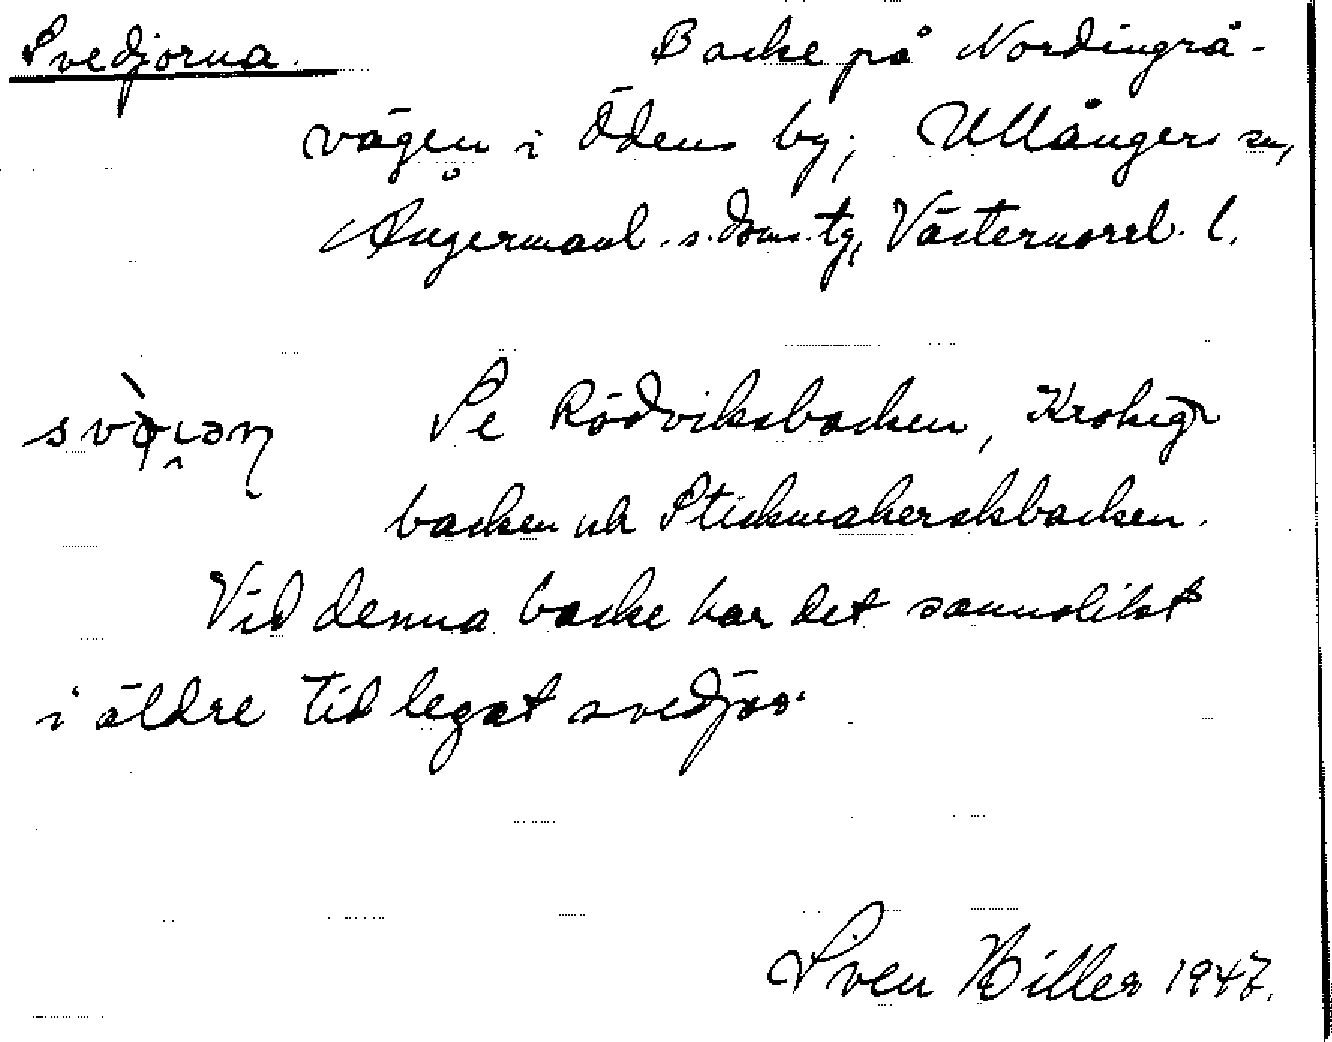 Svedjorna. Backe på Nordingrå-
vägen i Ödens by, Ullångers sn,
Ångermanl. s. doms. tg, Västernorrl. l.
Se Rödviksbacken, Krokig
backen och Stickmakerskbacken.
Vid denna backe har det sannolikt
i äldre tid legat svedjor.
Sven Hiller 1947.